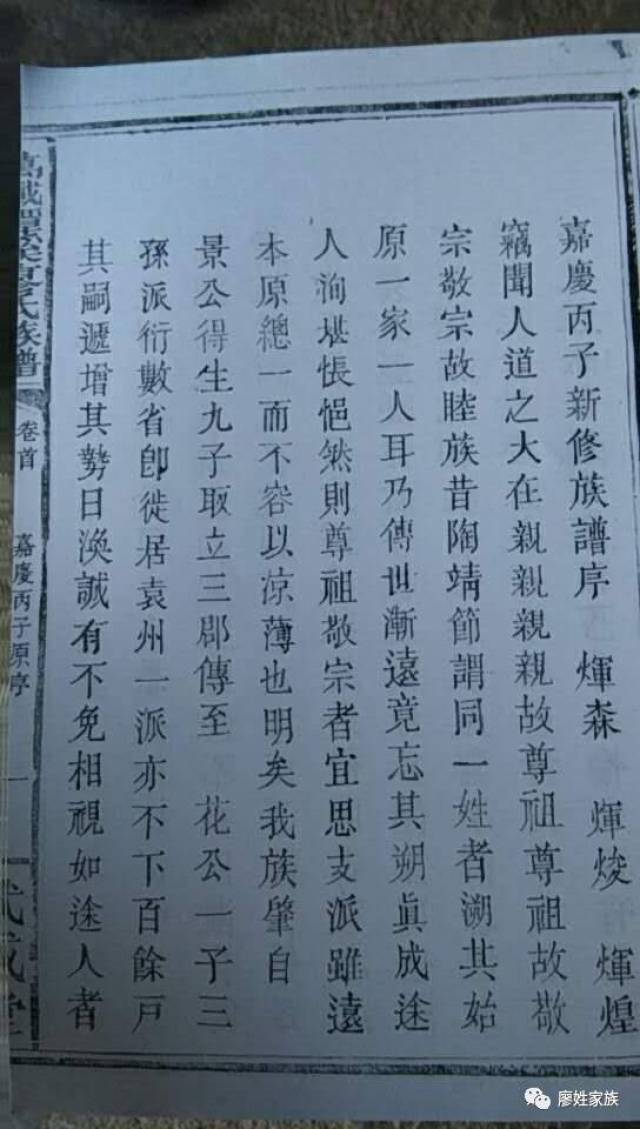 嘉慶丙子新修族譜序 煇森 煇焌 煇煌
竊聞人道之大在親親親親故尊祖尊祖故敬
宗敬宗故睦族昔陶靖節謂同一姓者溯其始
原一家一人耳乃傳世漸遠竟忘其朔眞成途
人洵堪悵悒然則尊祖敬宗者宜思支派雖遠
本原總一而不容以凉薄也明矣我族肇自
景公得生九子取立三郡傳至 花公一子三
孫派衍數省卽徙居袁州一派亦不下百餘戸
其嗣遞增其勢日渙誠有不免相視如途人者
氏族譜
卷首
嘉慶丙子原序
一
武威堂
廖姓家族